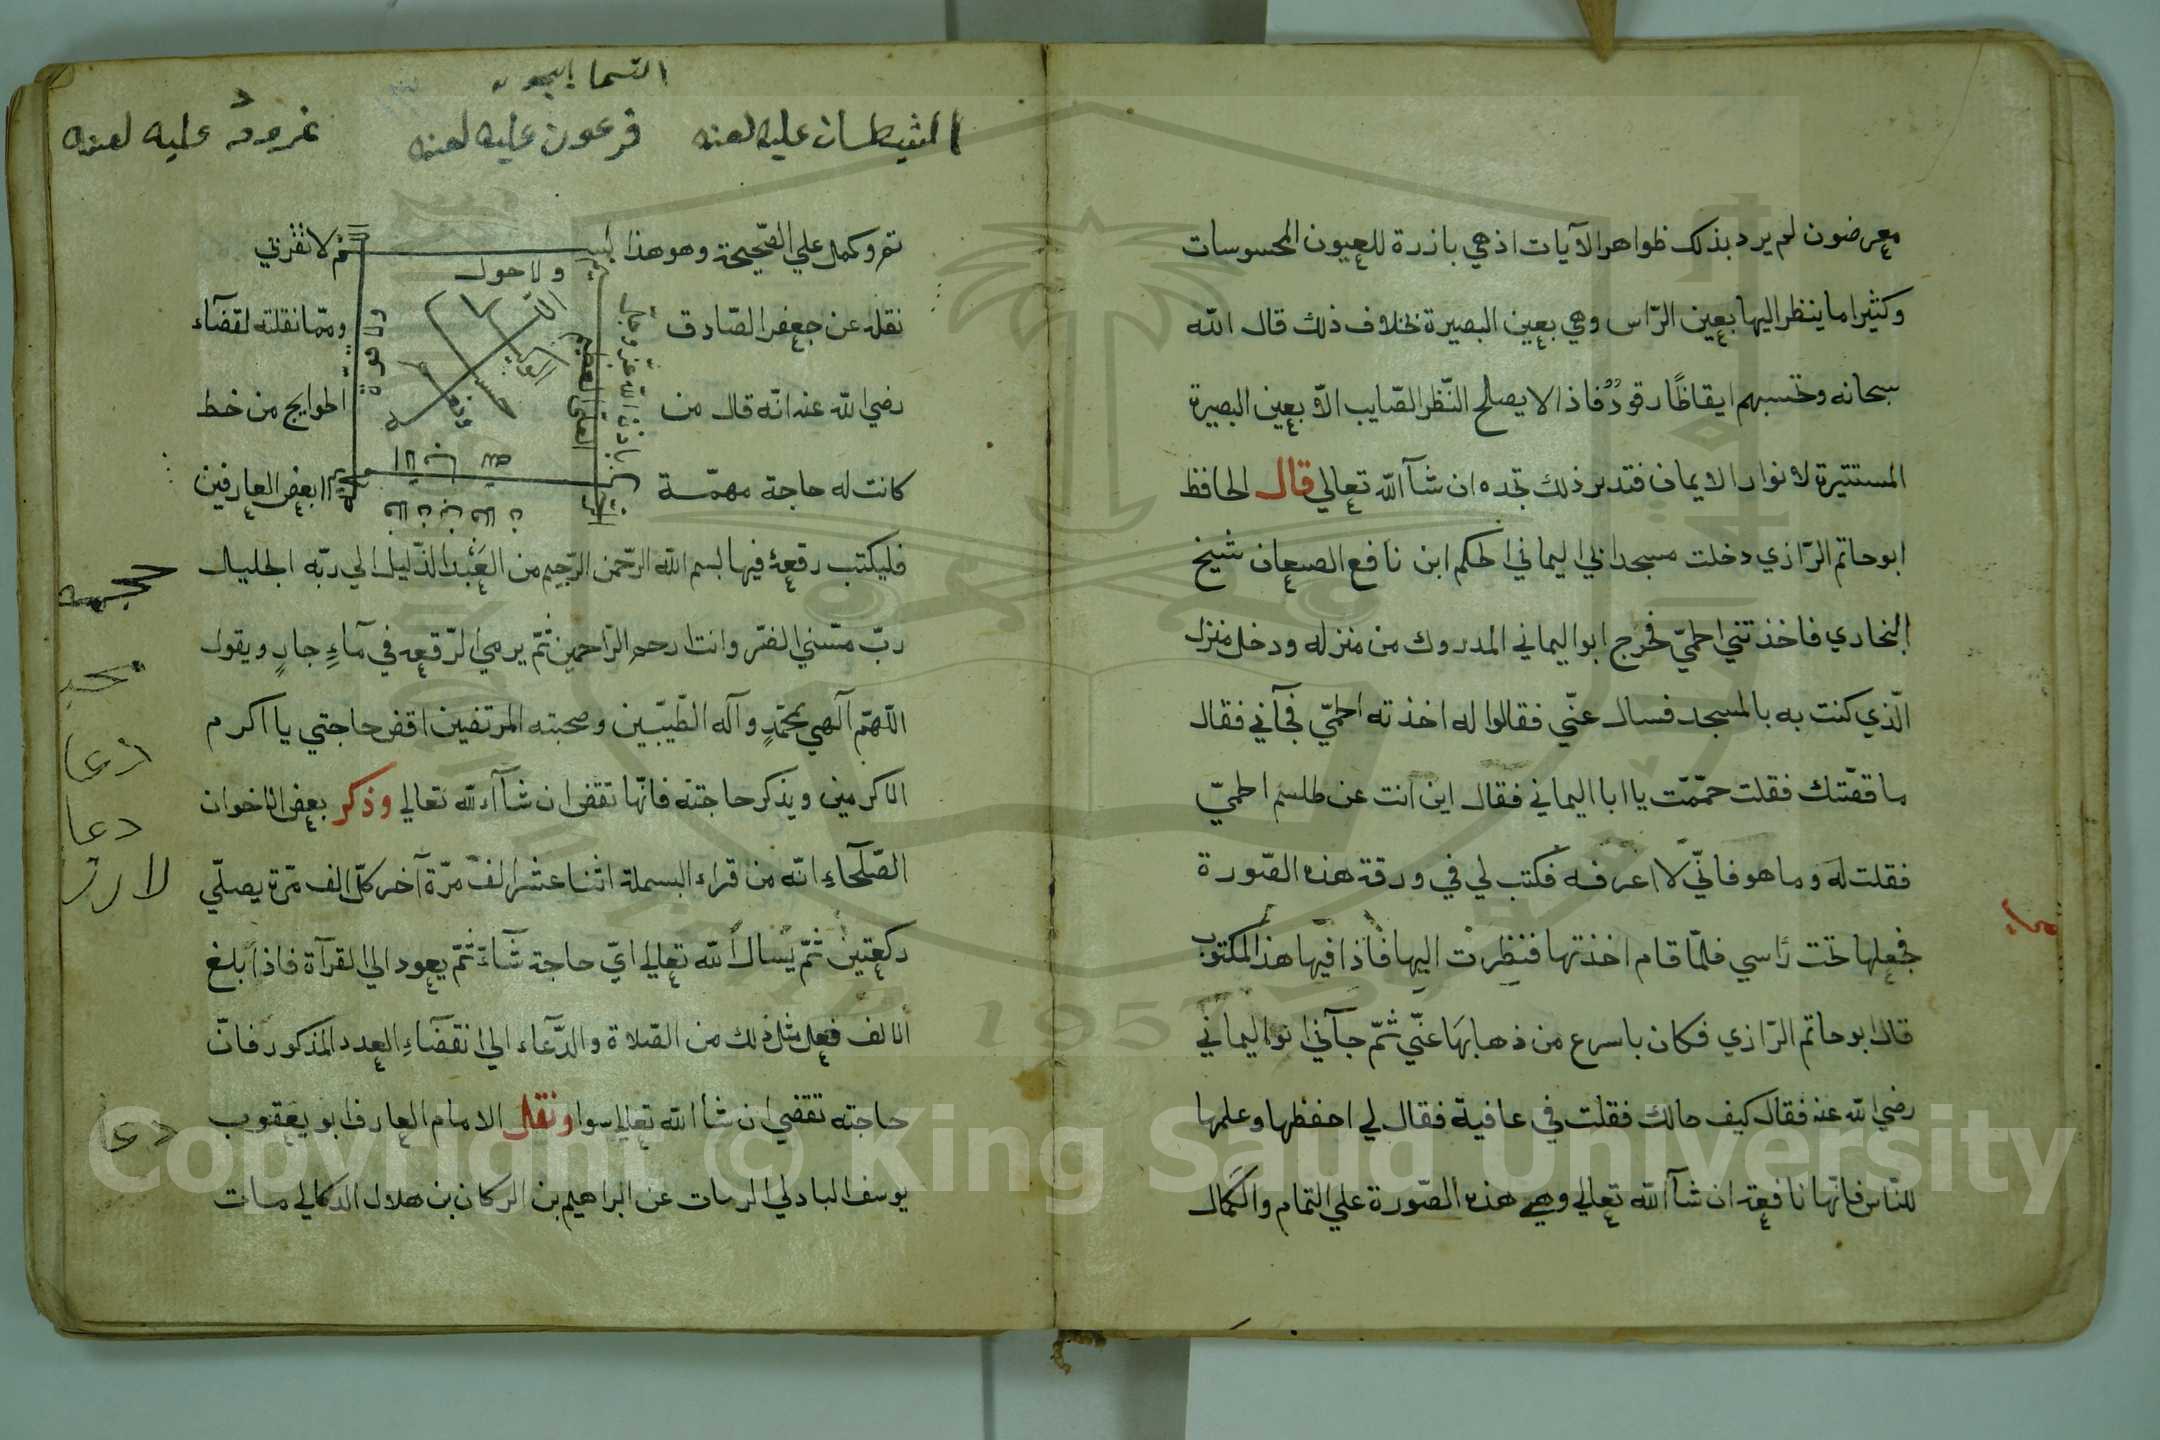 معرضون لم يرد بذلك ظواهر الآيات اذ هي بازرة للعيون المحسوسات
وكثيرا ما ينظر اليها بعين الرّاس وهي بعين البصيرة بخلاف ذلك قال الله
سبحانه وتحسبهم ايقاظًا رقودٌ فاذا لا يصلح النّظر الصّايب الاّ بعين البصيرة
المستنيرة لانوار الايمان فتدبر ذلك تجده ان شآ الله تعالي قال الحافظ
ابو حاتم الرّازي دخلت مسجد ابي اليماني الحكم ابن نافع الصعان شيخ
البخاري فاخذتني الحميّ فخرج ابو اليماني المدروك من منزله ودخل منزل
الّذي كنت به بالمسجد فسال عنّي فقالوا له اخذته الحميّ فجآني فقال
ما قصّتك فقلت حمّمت يا ابا اليماني فقال اين انت عن طلسم الحميّ
فقلت له وما هو فانّي لا اعرفه فكتب لي في ورقة هذه الصّورة
فجعلها تحت رٔاسي فلمّا قام اخذتها فنظرت اليها فاذا فيها هذا المكتوب
قال ابو حاتم الرّازي فكان باسرع من ذهابها عنّي ثمّ جآني ابو اليماني
رضي الله عنه فقال كيف حالك فقلت في عافية فقال لي احفظها وعلمها
للنّاس فانّها نافعة ان شآ الله تعالي وهي هذه الصّورة علي التمام والكمال
الشيطان عليه لعنه فرعون عليه لعنه نمرود عليه لعنه
تم وكمل علي الصّحيحة وهو هذا ثم لا تقربني
ولا حول
نقله عن جعفر الصّادق وممّا نقلته لقضآء
رضي الله عنه انّه قال من الحوايج من خط
باذن الله عزّ وجلّ
العلي العظيم
كانت له حاجة مهمّة بعض العارفين
فليكتب رقعة فيها بسم الله الرّحمن الرّحيم من العَبْد الذّليل الي ربّه الجليل
ربّ مسّني الضّر وانت ارحم الرّاحمين ثمّ يرمي الرّقعه في مآءٍ جارٍ ويقول
اللّهمّ الهي بمحمّدٍ وآله الطّيّبين وصحبته المرتضين اقض حاجتي يا اكرم
الاكرمين ويذكر حاجته فانّها تقض ان شآ الله تعالي وذكر بعض الاخوان
الصّلحآء انّه من قراء البسملة اثنا عشر الف مرّة آخر كلّ الف مرّة يصلّي
ركعتين ثمّ يسال الله تعالي ايّ حاجة شآء ثمّ يعود الي القرآة فاذا بلغ
الالف فعل مثل ذلك من الصّلاة والدّعآء الي انقضآء العدد المذكور فانّ
حاجته تقضي ان شا الله تعالي سوا ونقل الامام العارف ابو يعقوب
يوسف البادلي الرمات عن ابراهيم بن الركان بن هلال الدكالي مات
دعا
دعا
Copyright © King Saud University
1957